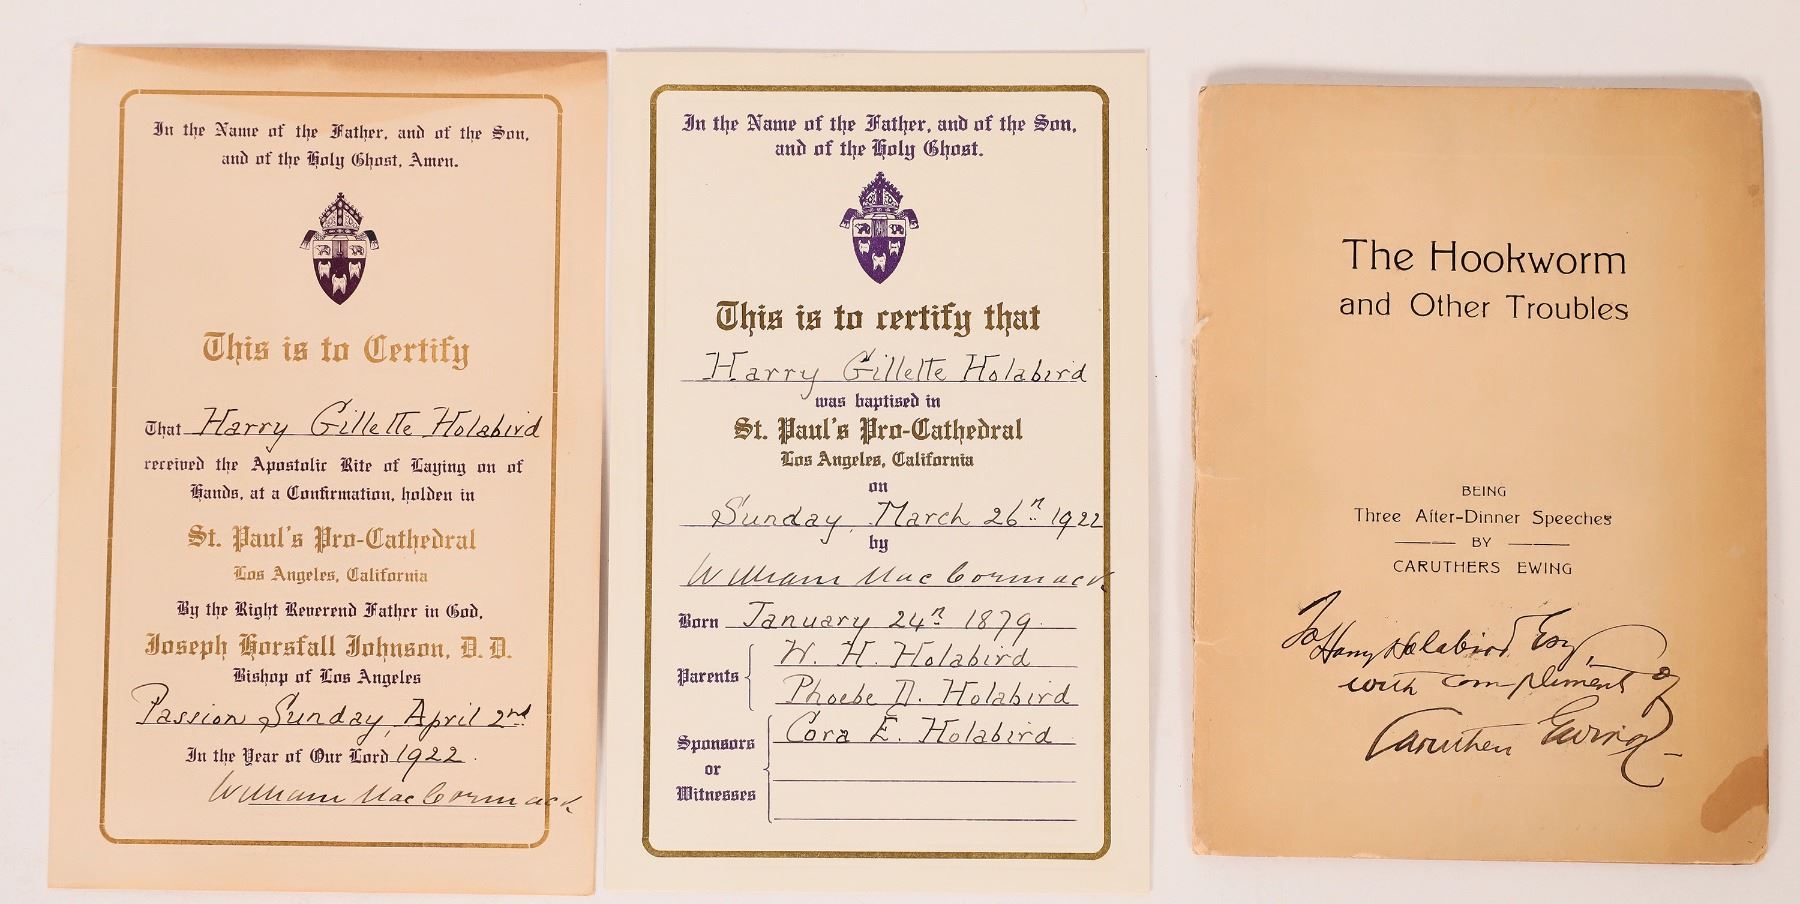 In the Name of the Father, and of the Son,
and of the Holy Ghost, Amen.
This is to Certify
That Harry Gillette Holabird
received the Apostolic Rite of Laying on of
Hands, at a Confirmation, holden in
St. Paul's Pro-Cathedral
Los Angeles, California
By the Right Reverend Father in God,
Joseph Horsfall Johnson, D. D.
Bishop of Los Angeles
Passion Sunday, April 2nd
In the Year of Our Lord 1922.
William MacCormack
In the Name of the Father, and of the Son,
and of the Holy Ghost.
This is to certify that
Harry Gillette Holabird
was baptised in
St. Paul's Pro-Cathedral
Los Angeles, California
on
Sunday, March 26th 1922
by
William MacCormack
Born January 24th 1879.
Parents
W. H. Holabird
Phoebe D. Holabird
Sponsors
or
Witnesses
Cora E. Holabird
The Hookworm
and Other Troubles
BEING
Three After-Dinner Speeches
BY
CARUTHERS EWING
To Harry Holabird Esq,
with compliments of
Caruthers Ewing